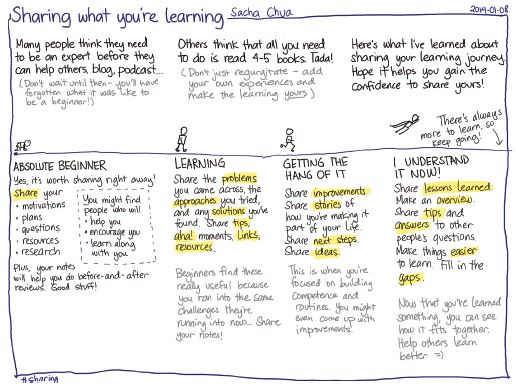 Sharing what you're learning Sacha Chua 2014-01-08
Many people think they need
to be an expert before they
can help others, blog, podcast...
(Don't wait until then - you'll have
forgotten what it was like to
be a beginner!)
Others think that all you need
to do is read 4-5 books. Tada!
(Don't just regurgitate - add
your own experiences and
make the learning yours)
Here's what I've learned about
sharing your learning journey.
Hope it helps you gain the
confidence to share yours!
There's always
more to learn, so
keep going!
ABSOLUTE BEGINNER
Yes, it's worth sharing right away!
Share your
• motivations
• plans
• questions
• resources
• research
You might find
people who will
• help you
• encourage you
• learn along
with you
Plus, your notes
will help you do before-and-after
reviews. Good stuff!
LEARNING
Share the problems
you came across, the
approaches you tried,
and any solutions you've
found. Share tips,
aha! moments, links,
resources.
Beginners find these
really useful because
you ran into the same
challenges they're
running into now... Share
your notes!
GETTING THE
HANG OF IT
Share improvements.
Share stories of
how you're making it
part of your life.
Share next steps.
Share ideas.
This is when you're
focused on building
competence and
routines. You might
even come up with
improvements.
I UNDERSTAND
IT NOW!
Share lessons learned
Make an overview.
Share tips and
answers to other
people's questions.
Make things easier
to learn. Fill in the
gaps.
Now that you've learned
something, you can see
how it fits together.
Help others learn
better =)
#sharing